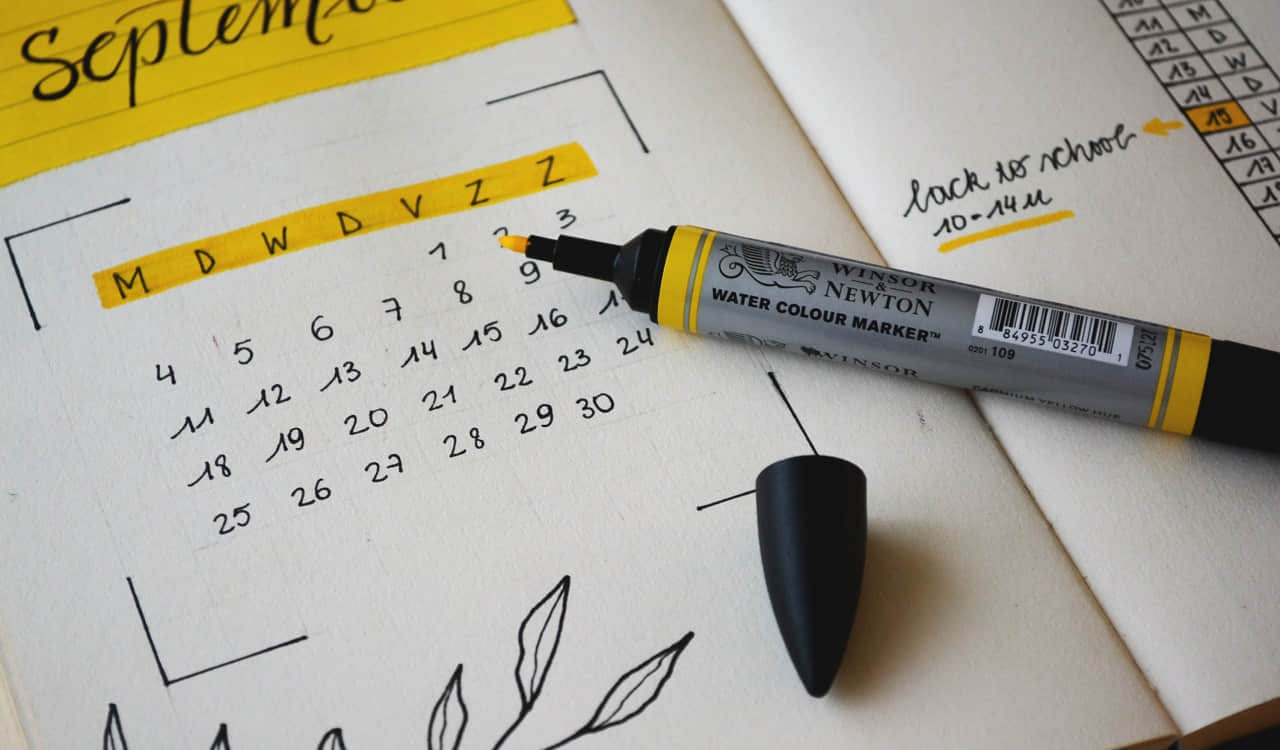 Septem
M D W D V Z Z
1 2 3
4 5 6 7 8 9
11 12 13 14 15 16
18 19 20 21 22 23 24
25 26 27 28 29 30
WINSOR
&
NEWTON
WATER COLOUR MARKER™
8 84955 03270 1
0201 109
075127
WINSOR
CADMIUM YELLOW HUE
back to school
10-14u
10
11 M
12 D
13 W
14 D
15 V
16
17